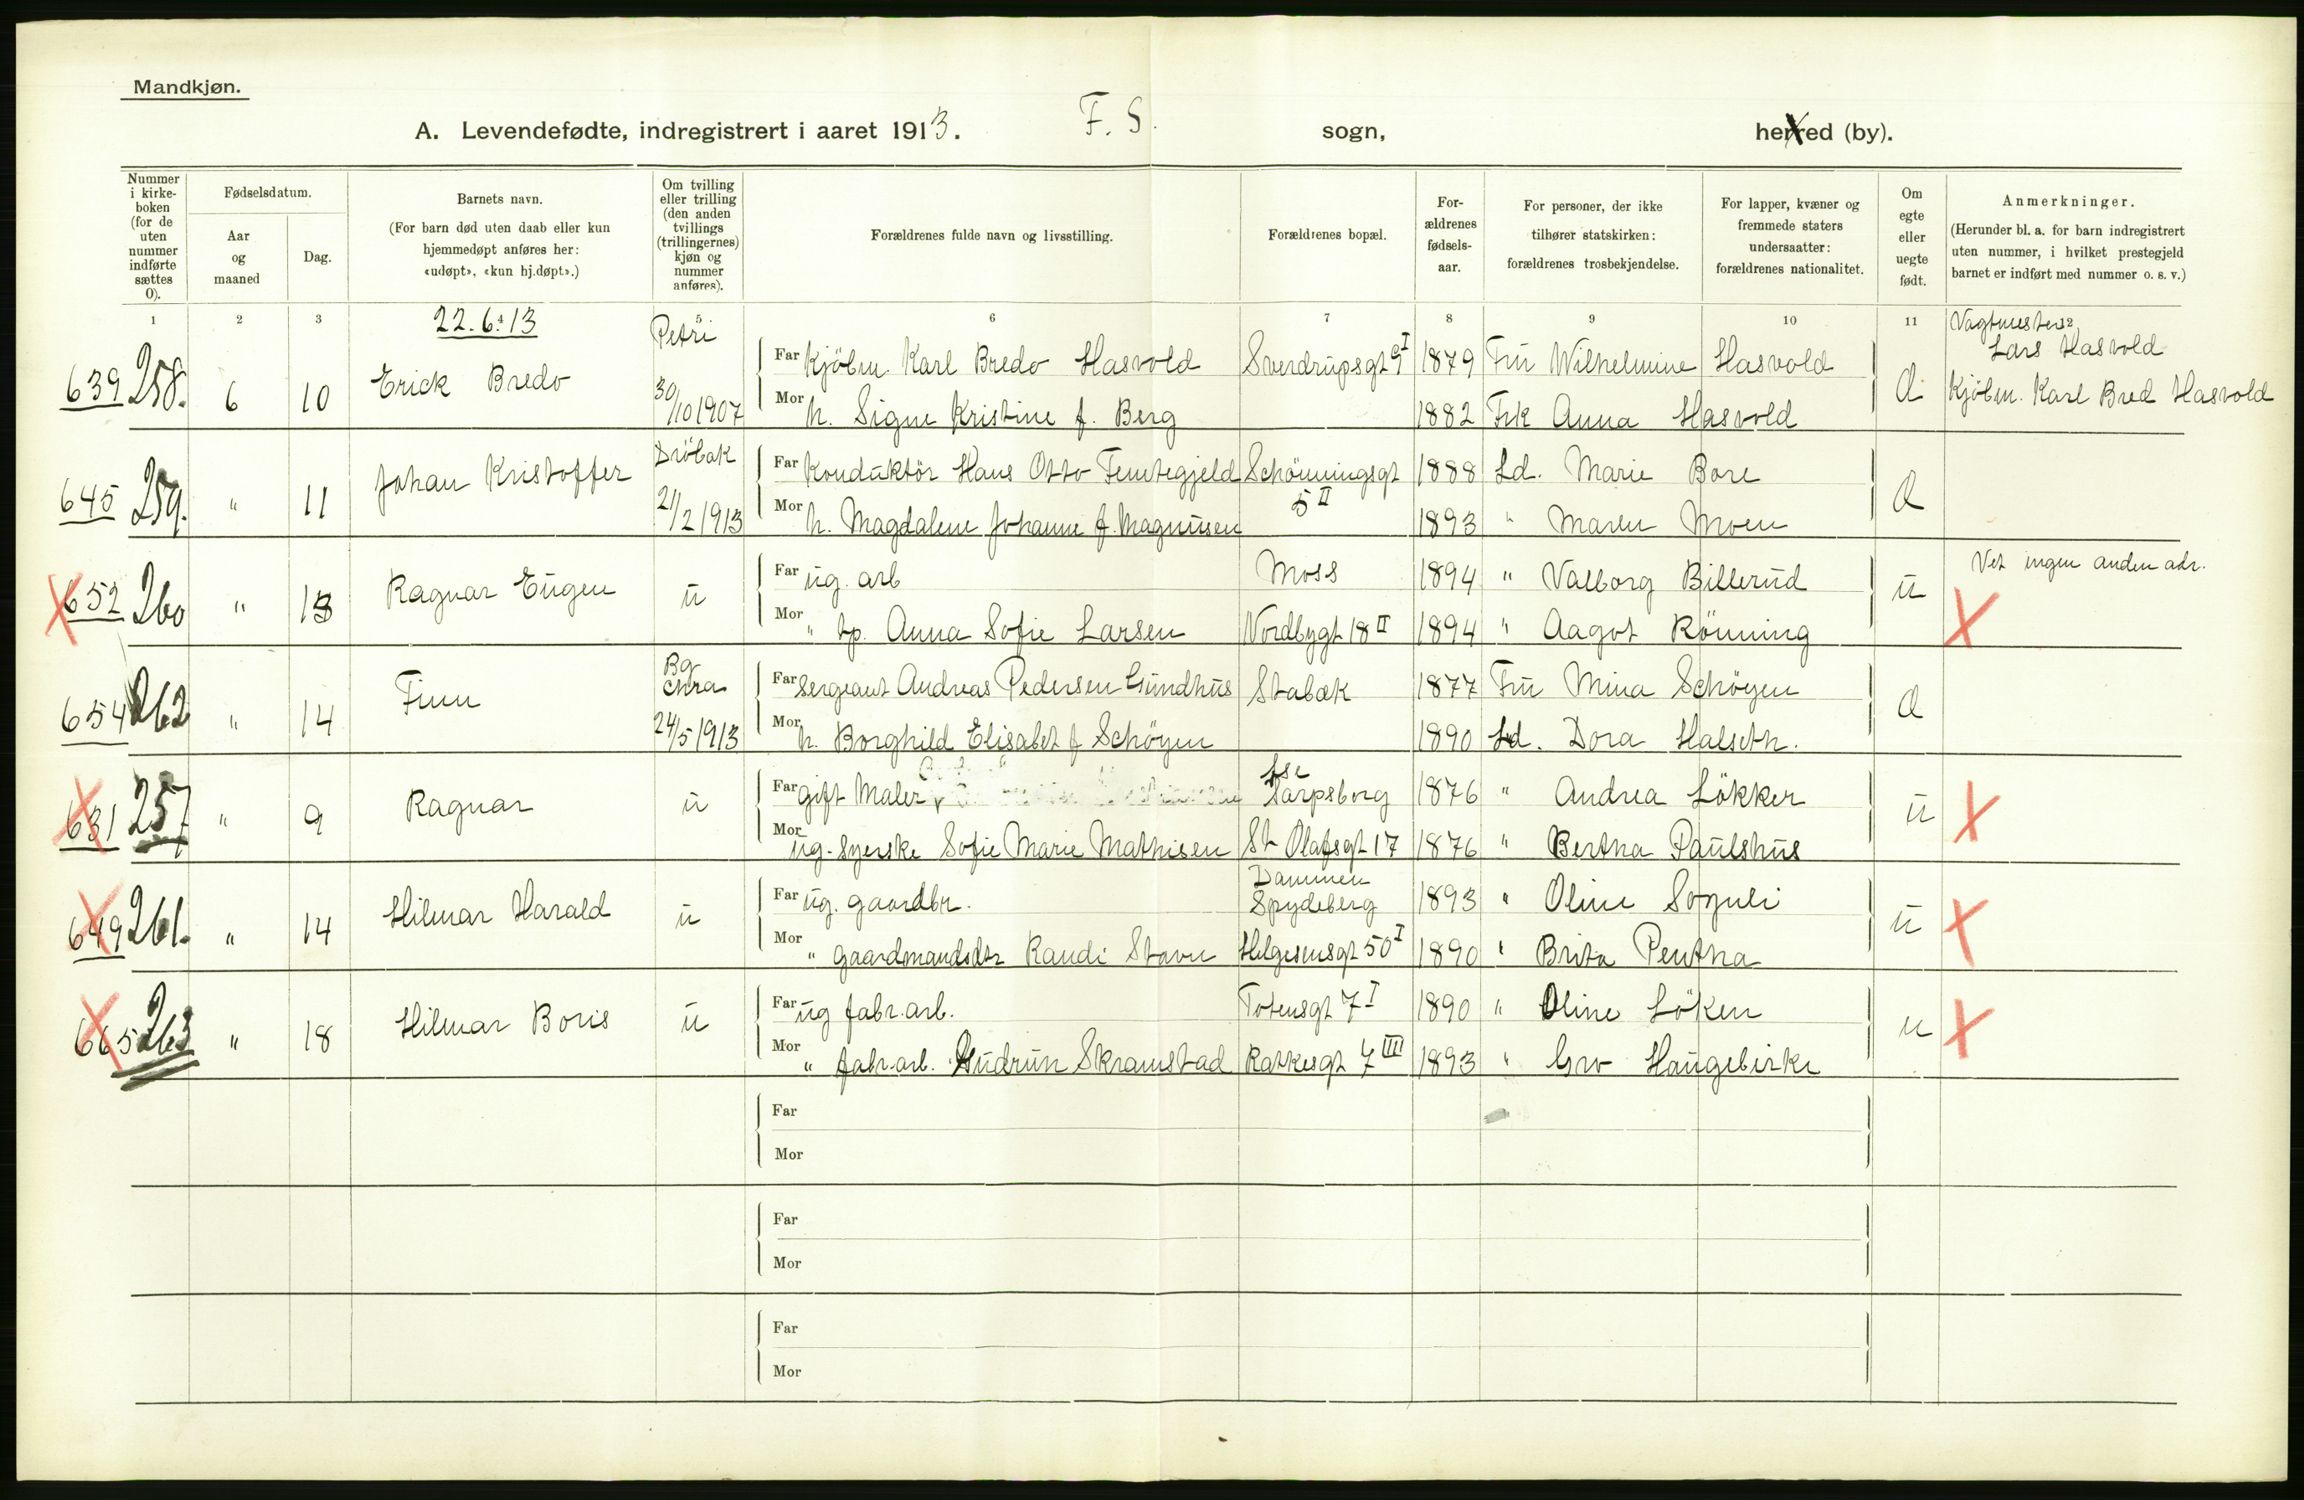 Mandkjøn.
A. Levendefødte, indregistrert i aaret 1913. F. S. sogn, herred (by).
Nummer i kirkeboken (for de uten nummer indførte sættes 0).
Fødselsdatum.
Aar og maaned
Dag.
Barnets navn.
(For barn død uten daab eller kun hjemmedøpt anføres her: «udøpt», «kun hj.døpt».)
Om tvilling eller trilling (den anden tvillings (trillingernes) kjøn og nummer anføres).
Forældrenes fulde navn og livsstilling.
Forældrenes bopæl.
For-ældrenes fødsels-aar.
For personer, der ikke tilhører statskirken: forældrenes trosbekjendelse.
For lapper, kvæner og fremmede staters undersaatter: forældrenes nationalitet.
Om egte eller uegte født.
Anmerkninger.
(Herunder bl. a. for barn indregistrert uten nummer, i hvilket prestegjeld barnet er indført med nummer o. s. v.)
1 2 3 4 5 6 7 8 9 10 11 12
22.6.13
639 258. 6 10 Erick Bredo Petri 30/10 1907
Far Kjöbm. Karl Bredo Hasvold Sverdrupsgt 9 I 1879 Fru Wilhelmine Hasvold
Mor h. Signe Kristine f. Berg 1882 Frk Anna Hasvold
Vagtmester Lars Hasvold
Kjöbm. Karl Bred Hasvold
645 259. " 11 Johan Kristoffer Dröbak 21/2 1913
Far Konduktör Hans Otto Femtegjeld Schönningsgt 5 II 1888 Ld. Marie Bore
Mor h. Magdalene Johanne f. Magnusen 1893 " Maren Moen
652 260 " 13 Ragnar Eugen u
Far ug. arb Moss 1894 " Valborg Billerud u Vet ingen anden adr.
Mor " tp. Anna Sofie Larsen Nordbygt 18 II 1894 " Aagot Rönning
654 262 " 14 Finn Bg Chra 24/5 1913
Far Sergeant Andreas Pedersen Gundhus Stabæk 1877 Fru Mina Schöyen
Mor h. Borghild Elisabet f Schöyen 1890 Ld. Dora Halseth.
631 257 " 9 Ragnar u
Far gift Maler Sarpsborg 1876 " Andrea Lökker u
Mor ug. syerske Sofie Marie Mathisen St Olafsgt 17 1876 " Bertha Paulshus
649 261. " 14 Hilmar Harald u
Far ug. gaardbr. Dammen Spydeberg 1893 " Oline Sognli u
Mor " gaardmandsdtr Randi Stavn Helgesensgt 50 I 1890 " Brita Pentha
665 263 " 18 Hilmar Boris u
Far ug fabr.arb. Totensgt 7 I 1890 " Oline Löken u
Mor " fabr.arb. Gudrun Skramstad Ratkesgt 7 III 1893 " Gro Haugebirke
Far
Mor
Far
Mor
Far
Mor